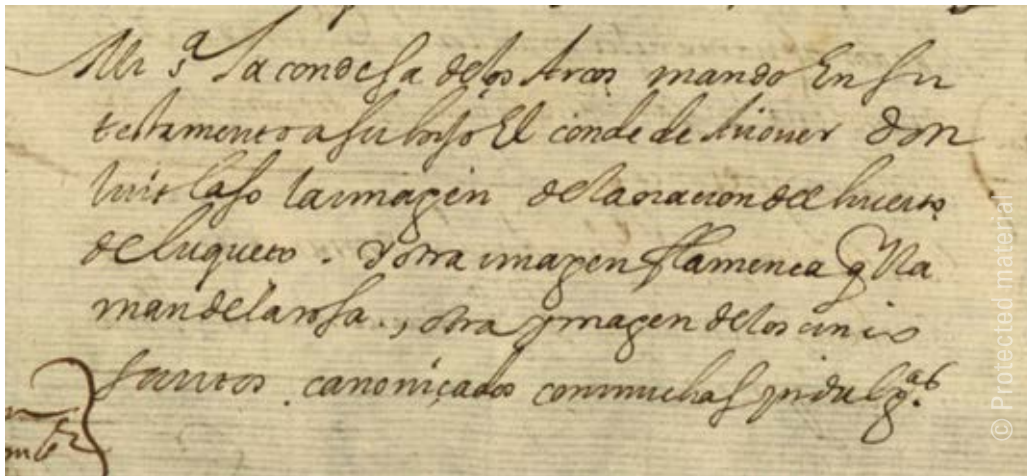 Mi sª la condesa de los Arcos mando En su
testamento a su hijo El conde de Añover don
luis laso la imagen de la oracion del huerto
de luqueto. Y otra imagen flamenca q lla
man de la rosa., otra ymagen de los cinco
santos canoniçados con muchas yndulgas.
© Protected material